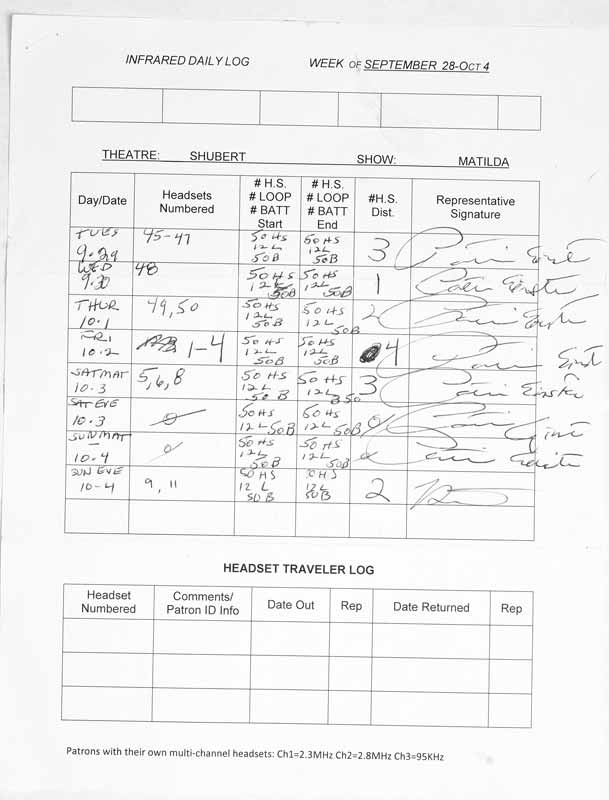 INFRARED DAILY LOG WEEK OF SEPTEMBER 28-OCT 4
THEATRE: SHUBERT SHOW: MATILDA
Day/Date
Headsets
Numbered
# H.S.
# LOOP
# BATT
Start
# H.S.
# LOOP
# BATT
End
#H.S.
Dist.
Representative
Signature
TUES
9.29
45-47
50 HS
12 L
50B
50 HS
12L
50B
3
WED
9.30
48
50 HS
12L
50B
50 HS
12L
50B
1
THUR
10.1
49,50
50 HS
12L
50B
50 HS
12L
50B
2
FRI
10.2
1-4
50 HS
12L
50B
50 HS
12L
50B
4
SAT MAT
10.3
5,6,8
50 HS
12L
50 B
50 HS
12L
B50
3
SAT EVE
10.3
0
50 HS
12L 50B
50 HS
12L 50B
0
SUN MAT
10.4
0
50 HS
12L
50B
50 HS
12L
50B
0
SUN EVE
10-4
9, 11
50 HS
12 L
50 B
50 HS
12L
50B
2
HEADSET TRAVELER LOG
Headset
Numbered
Comments/
Patron ID Info
Date Out
Rep
Date Returned
Rep
Patrons with their own multi-channel headsets: Ch1=2.3MHz Ch2=2.8MHz Ch3=95KHz